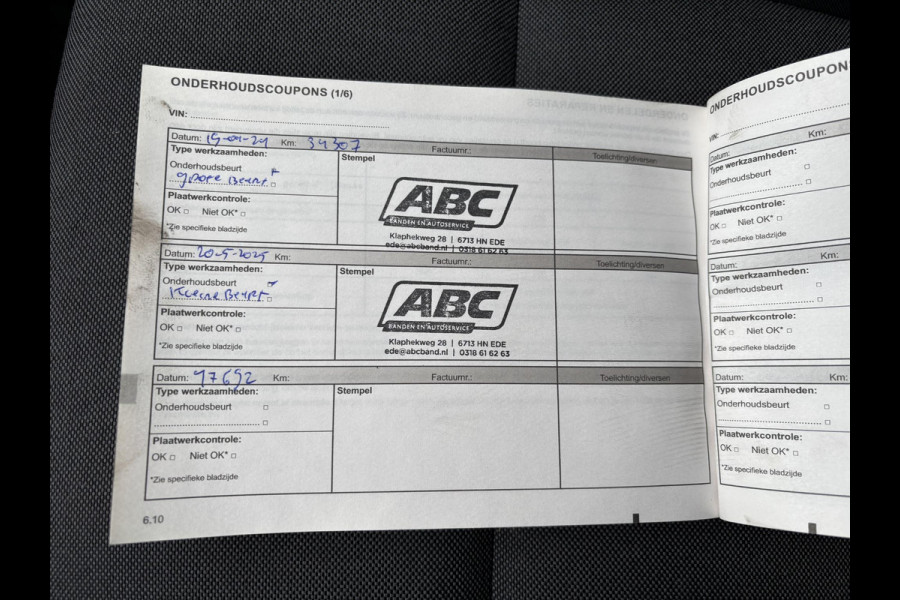 ONDERHOUDSCOUPONS (1/6)
VIN:
Datum: Km: 34307 Factuurnr.: Toelichting/diversen
Type werkzaamheden: Stempel
Onderhoudsbeurt
grote Beurt
Plaatwerkcontrole:
OK Niet OK*
*Zie specifieke bladzijde
ABC
BANDEN EN AUTOSERVICE
Klaphekweg 28 | 6713 HN EDE
ede@abcband.nl | 0318 61 62 63
Datum: 20-5-2025 Km: Factuurnr.: Toelichting/diversen
Type werkzaamheden: Stempel
Onderhoudsbeurt
Kleine Beurt
Plaatwerkcontrole:
OK Niet OK*
*Zie specifieke bladzijde
ABC
BANDEN EN AUTOSERVICE
Klaphekweg 28 | 6713 HN EDE
ede@abcband.nl | 0318 61 62 63
Datum: 47692 Km: Factuurnr.: Toelichting/diversen
Type werkzaamheden: Stempel
Onderhoudsbeurt
Plaatwerkcontrole:
OK Niet OK*
*Zie specifieke bladzijde
6.10
ONDERHOUDSCOUPON
VIN:
Datum: Km:
Type werkzaamheden:
Onderhoudsbeurt
Plaatwerkcontrole:
OK Niet OK*
*Zie specifieke bladzijde
Datum: Km:
Type werkzaamheden:
Onderhoudsbeurt
Plaatwerkcontrole:
OK Niet OK*
*Zie specifieke bladzijde
Datum: Km:
Type werkzaamheden:
Onderhoudsbeurt
Plaatwerkcontrole:
OK Niet OK*
*Zie specifieke bladzijde